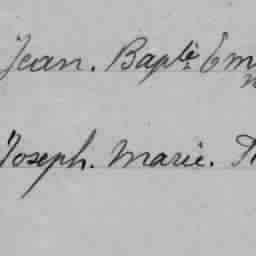 Jean. Bapte. Em
Joseph. Marie.